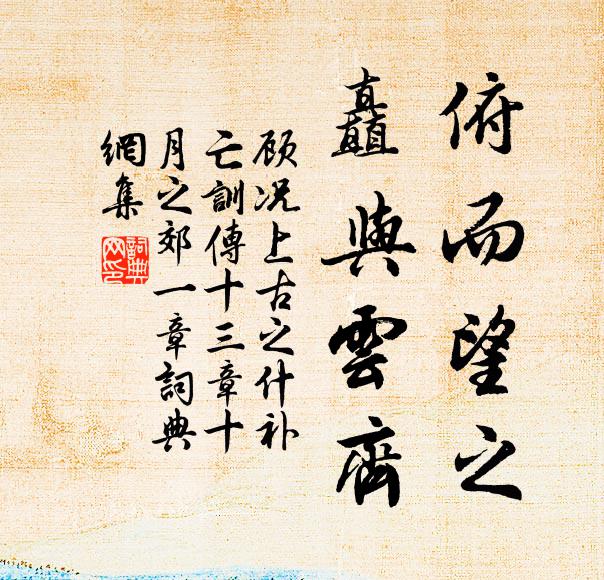 俯而望之
矗與雲齊
顾况上古之什补
亡訓傳十三章十
月之郊一章詞典
網集
詞典網印